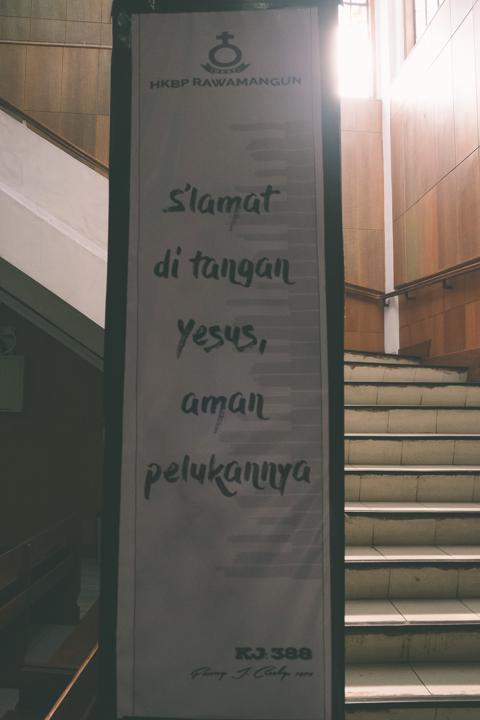 HKBP RAWAMANGUN
s'lamat
di tangan
Yesus,
aman
pelukannya
KJ: 388
Fanny J. Crosby